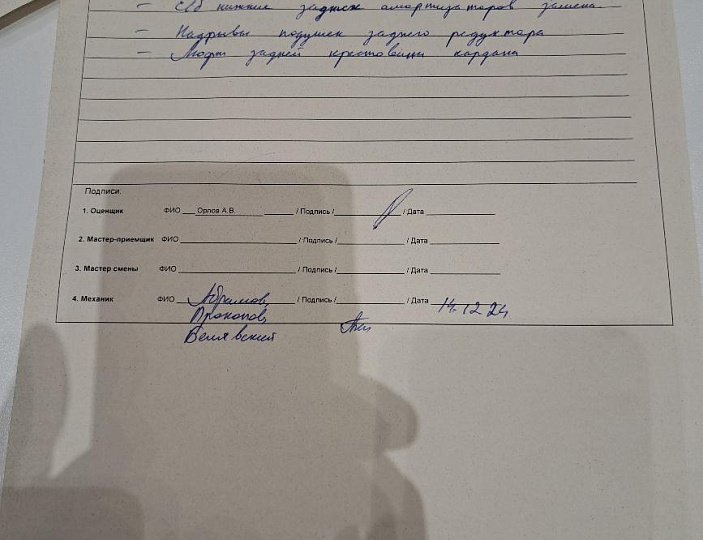 - С/б нижние задних амортизаторов замена
- Надрывы подушек заднего редуктора
- Люфт задней крестовины кардана
Подписи:
1. Оценщик ФИО Орлов А.В. / Подпись / / Дата
2. Мастер-приемщик ФИО / Подпись / / Дата
3. Мастер смены ФИО / Подпись / / Дата
4. Механик ФИО Абрамов, / Подпись / / Дата 14.12.24
Прокопов,
Велявский